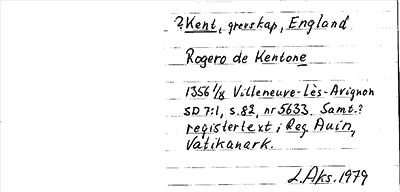 ?Kent, grevskap, England
Rogero de Kentone
1356 1/8 Villeneuve-Lès-Avignon
SD 7:1, s. 82, nr 5633. Samt.?
registertext i Reg Auin,
Vatikanark.
L. Aks. 1979